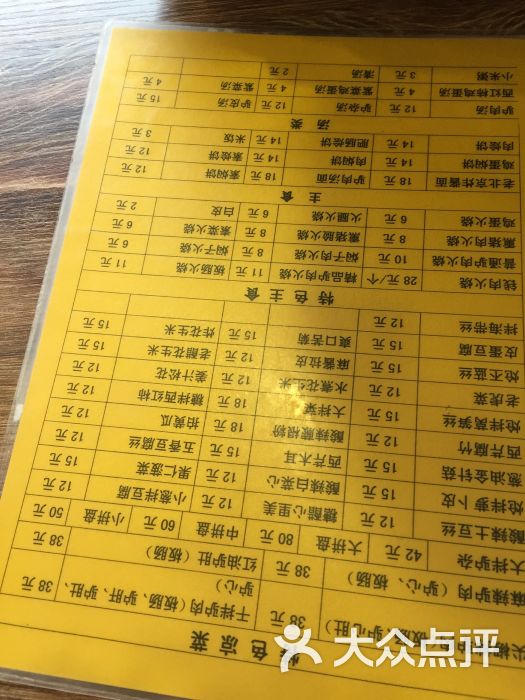 色凉菜
驴心肚） 38元 干拌驴肉（板肠、驴肝、驴肚、驴心） 38元
麻辣驴肉（驴心、板肠） 38元 红油驴肚（板肠） 38元
大拌驴杂 42元 大拼盘 80元 中拼盘 60元 小拼盘 50元
酸辣土豆丝 12元 糖醋心里美 12元 小葱拌豆腐 12元
炝拌萝卜皮 15元 酸辣白菜心 12元 果仁菠菜 15元
葱油金针菇 12元 西芹木耳 15元 五香豆腐丝 12元
西芹腐竹 15元 酸辣蕨根粉 18元 拍黄瓜 12元
炝拌莴笋丝 15元 大拌菜 18元 糖拌西红柿 12元
老虎菜 12元 水煮花生米 12元 姜汁松花 15元
炝芥蓝丝 15元 麻酱拉皮 12元 老醋花生米 15元
皮蛋豆腐 15元 爽口苦菊 15元 炸花生米 15元
拌海带丝 12元
特色主食
钱肉火烧 28元/个 精品驴肉火烧 11元 板肠火烧 11元
普通驴肉火烧 10元 焖子肉火烧 8元 焖子火烧 6元
瘦猪肉火烧 8元 瘦猪脸火烧 8元 素菜火烧 6元
鸡蛋火烧 6元 火腿火烧 6元 白皮 2元
主食
老北京炸酱面 18元 驴肉汤面 18元 素焖饼 12元
鸡蛋焖饼 14元 肉焖饼 14元 素烧饼 12元
肉烧饼 14元 肥肠烧饼 14元 米饭 3元
汤类
驴肉汤 12元 驴杂汤 12元 驴皮汤 15元
西红柿鸡蛋汤 4元 紫菜鸡蛋汤 4元 紫菜汤 4元
小米粥 3元 清汤 2元
大众点评